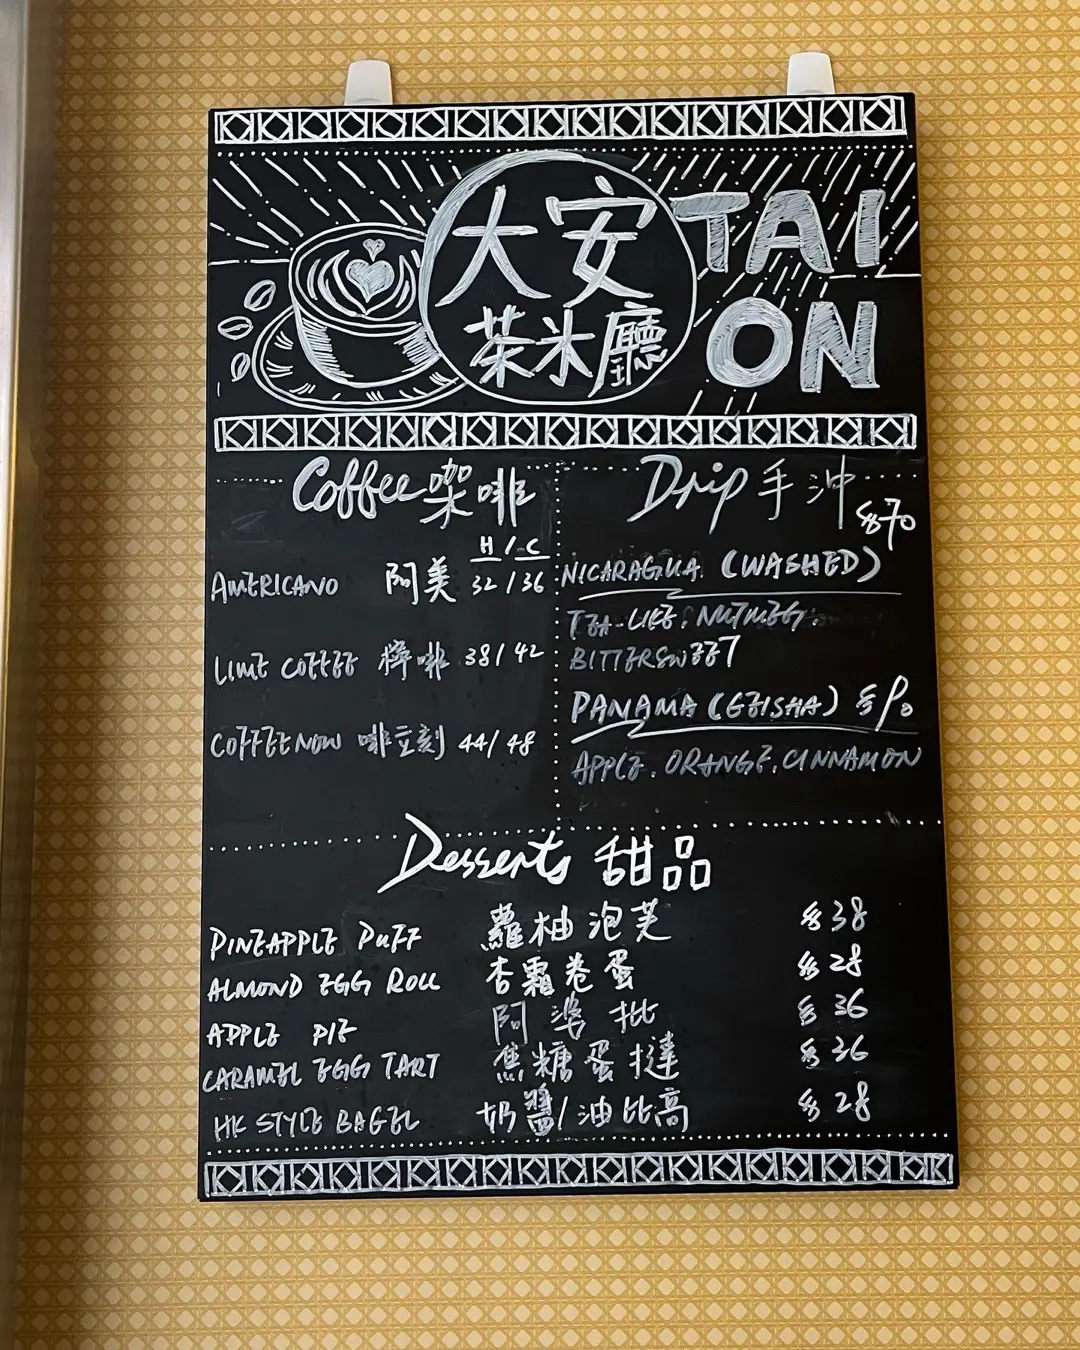 大安
茶冰廳
TAI
ON
Coffee 咖啡
H / C
AMERICANO 阿美 32/36
LIME COFFEE 檸啡 38/42
COFFEENOW 啡立刻 44/48
Drip 手沖
$70
NICARAGUA (WASHED)
TEA-LIKE, NUTMEG,
BITTERSWEET
PANAMA (GEISHA) $90
APPLE, ORANGE, CINNAMON
Desserts 甜品
PINEAPPLE PUFF 蘿柚泡芙 $38
ALMOND EGG ROLL 杏霜卷蛋 $28
APPLE PIE 阿婆批 $36
CARAMEL EGG TART 焦糖蛋撻 $36
HK STYLE BAGEL 奶醬/油比高 $28